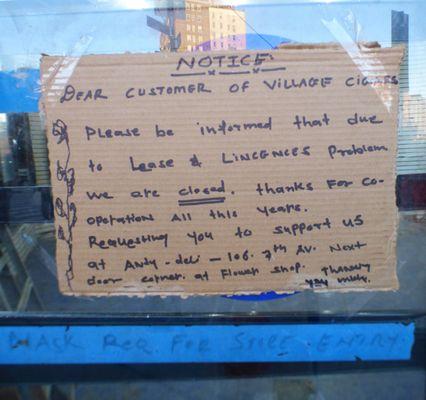 NOTICE.
DEAR CUSTOMER OF VILLAGE CIGARS
Please be informed that due
to Lease & LINCENCES Problem
we are closed. thanks For co-
operation All this years.
Requesting you to support us
at Andy-deli - 106. 7th Av. Next
door corner. at Flower shop. Thanking
you much.
MASK REQ. FOR STORE ENTRY.